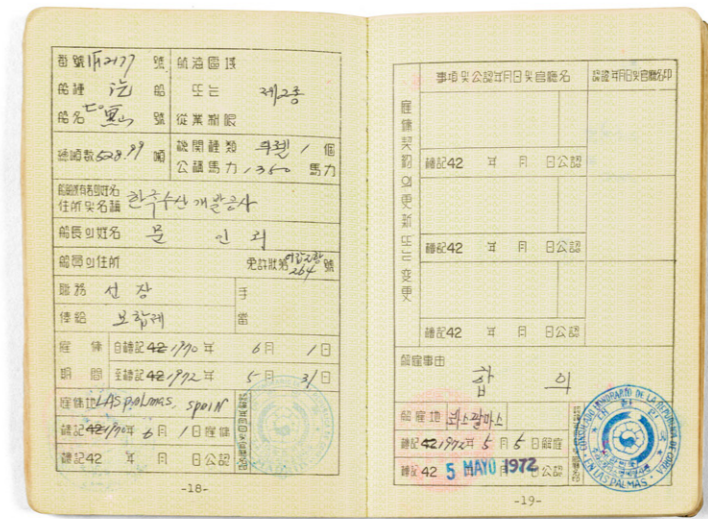 番號 1172177 號
航海區域
船種 汽 船
또는 제2종
船名 七魚山 號
從業制限
總噸數 528.99 噸
機關種類 디젤 1 個
公稱馬力 1350 馬力
船舶所有者의姓名
住所및名稱 한국수산개발공사
船長의姓名 문 인 리
船長의住所 免許狀第 264 號
職務 선 장
手
俸給 보합제
當
雇傭 自檀記 42 1970 年 6 月 1 日
期間 至檀記 42 1972 年 5 月 31 日
雇傭地 LAS palmas, SPAIN
檀記 42 1970年 6 月 1 日雇傭
檀記42 年 月 日公認
-18-
事項및公認年月日및官廳名
認證年月日및官廳名印
雇傭契約의更新또는變更
檀記42 年 月 日公認
檀記42 年 月 日公認
檀記42 年 月 日公認
解雇事由
합 의
解雇地 라스팔마스
檀記 42 1972年 5 月 5 日解雇
檀記 42 5 MAYO 1972 日公認
CONSULADO HONORARIO DE LA REPUBLICA DE COREA
EN LAS PALMAS
-19-